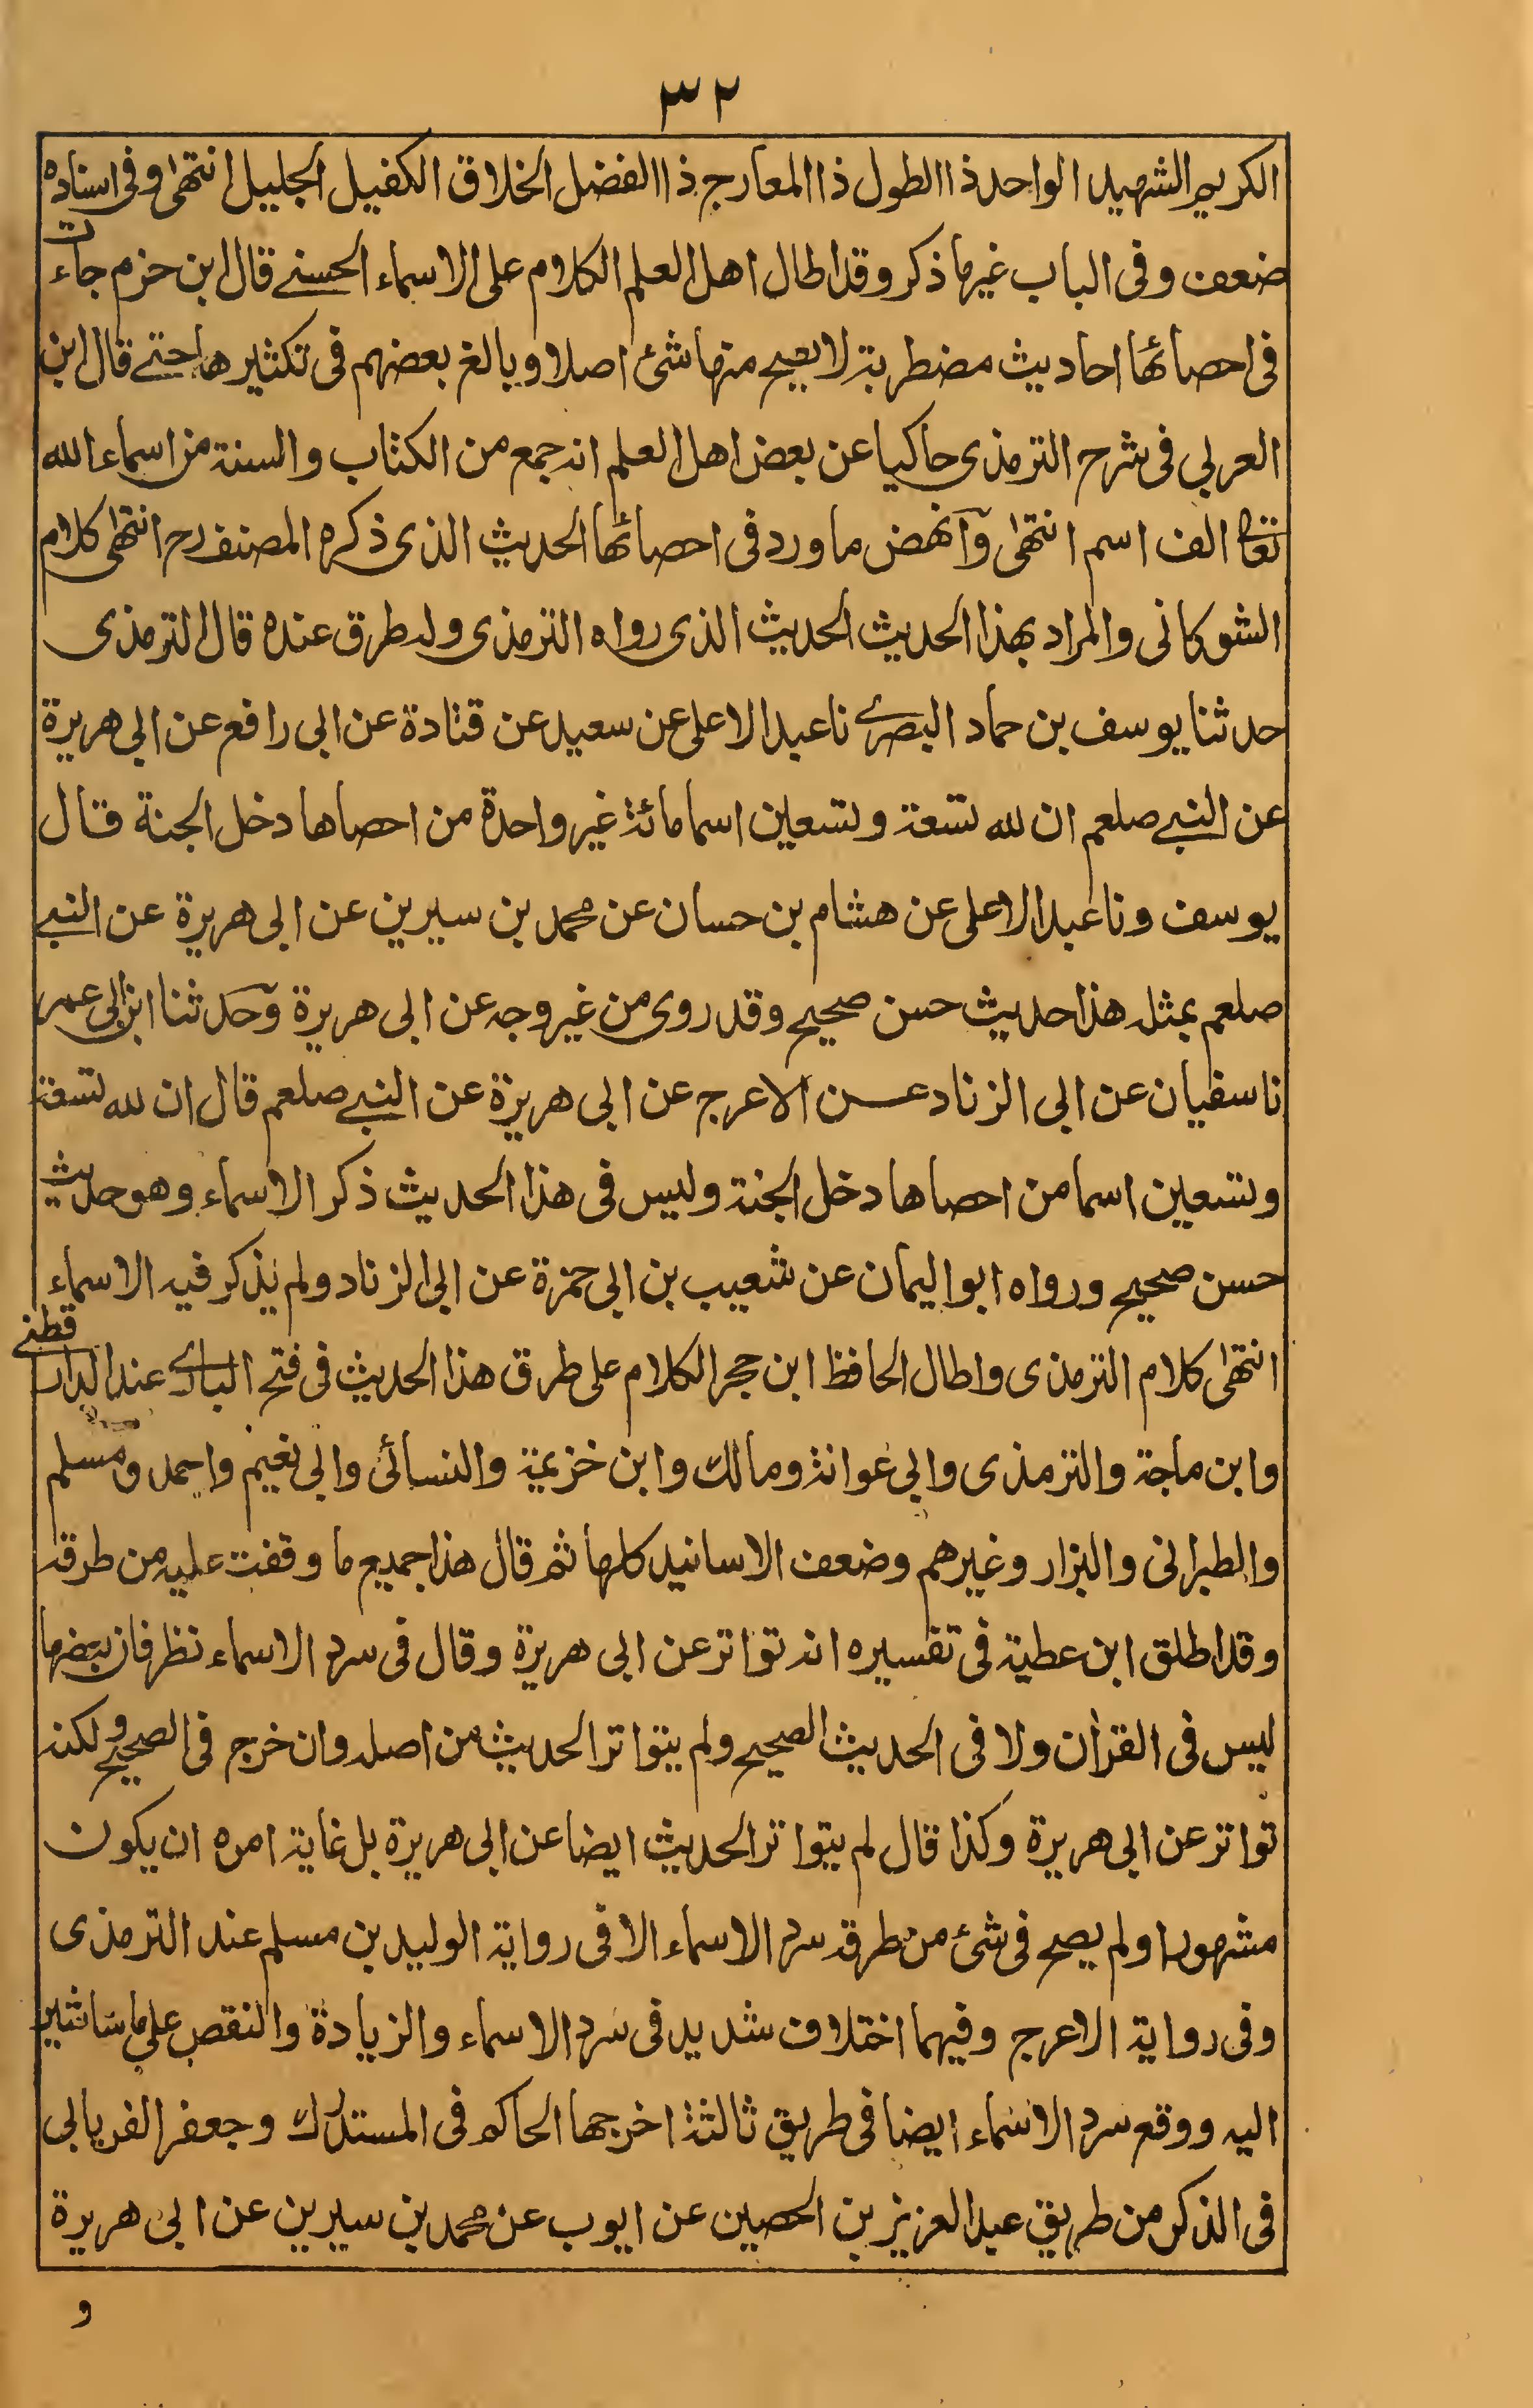 ٣٢
الكريم الشهيد الواحد ذا الطول ذا المعارج ذا الفضل الخلاق الكفيل الجليل انتهى وفى اسناده
ضعف وفى الباب غيرما ذكر وقد اطال اهل العلم الكلام على الاسماء الحسنے قال ابن حزم جاءت
فى احصائها احاديث مضطربة لا يصح منها شئ اصلا وبالغ بعضهم فى تكثيرها حتے قال ابن
العربي فى شرح الترمذى حاكيا عن بعض اهل العلم انه جمع من الكتاب والسنة من اسماء الله
تعالى الف اسم انتهى وآنهض ما ورد فى احصائها الحديث الذى ذكره المصنف رح انتهى كلام
الشوكانى والمراد بهذا الحديث الحديث الذى رواه الترمذى وله طرق عنده قال الترمذى
حدثنا يوسف بن حماد البصرے نا عبد الاعلى عن سعيد عن قتادة عن ابى رافع عن ابى هريرة
عن النبے صلعم ان لله تسعة وتسعين اسما مائة غير واحدة من احصاها دخل الجنة قال
يوسف ونا عبد الاعلى عن هشام بن حسان عن محمد بن سيرين عن ابى هريرة عن النبے
صلعم بمثله هذا حديث حسن صحيح وقد روى من غير وجه عن ابى هريرة وحدثنا ابن ابى عمر
نا سفيان عن ابى الزناد عن الاعرج عن ابى هريرة عن النبے صلعم قال ان لله تسعة
وتسعين اسما من احصاها دخل الجنة وليس فى هذا الحديث ذكر الاسماء وهو حديث
حسن صحيح ورواه ابو اليمان عن شعيب بن ابى حمزة عن ابى الزناد ولم يذكر فيه الاسماء
انتهى كلام الترمذى واطال الحافظ ابن حجر الكلام على طرق هذا الحديث فى فتح البارے عند الدارقطنے
وابن ماجة والترمذى وابى عوانة ومالك وابن خزيمة والنسائى وابى نعيم واحمد ومسلم
والطبرانى والبزار وغيرهم وضعف الاسانيد كلها ثم قال هذا جميع ما وقفت عليه من طرقه
وقد اطلق ابن عطية فى تفسيره انه تواتر عن ابى هريرة وقال فى سرد الاسماء نظر فان بعضها
ليس فى القرآن ولا فى الحديث الصحيح ولم يتواتر الحديث من اصله وان خرج فى الصحيح ولكنه
تواتر عن ابى هريرة وكذا قال لم يتواتر الحديث ايضا عن ابى هريرة بل غاية امره ان يكون
مشهورا ولم يصح فى شئ من طرقه سرد الاسماء الا فى رواية الوليد بن مسلم عند الترمذى
وفى رواية الاعرج وفيهما اختلاف شديد فى سرد الاسماء والزيادة والنقص على ما ساشير
اليه ووقع سرد الاسماء ايضا فى طريق ثالثة اخرجها الحاكم فى المستدرك وجعفر الفريابى
فى الذكر من طريق عبد العزيز بن الحصين عن ايوب عن محمد بن سيرين عن ابى هريرة
و